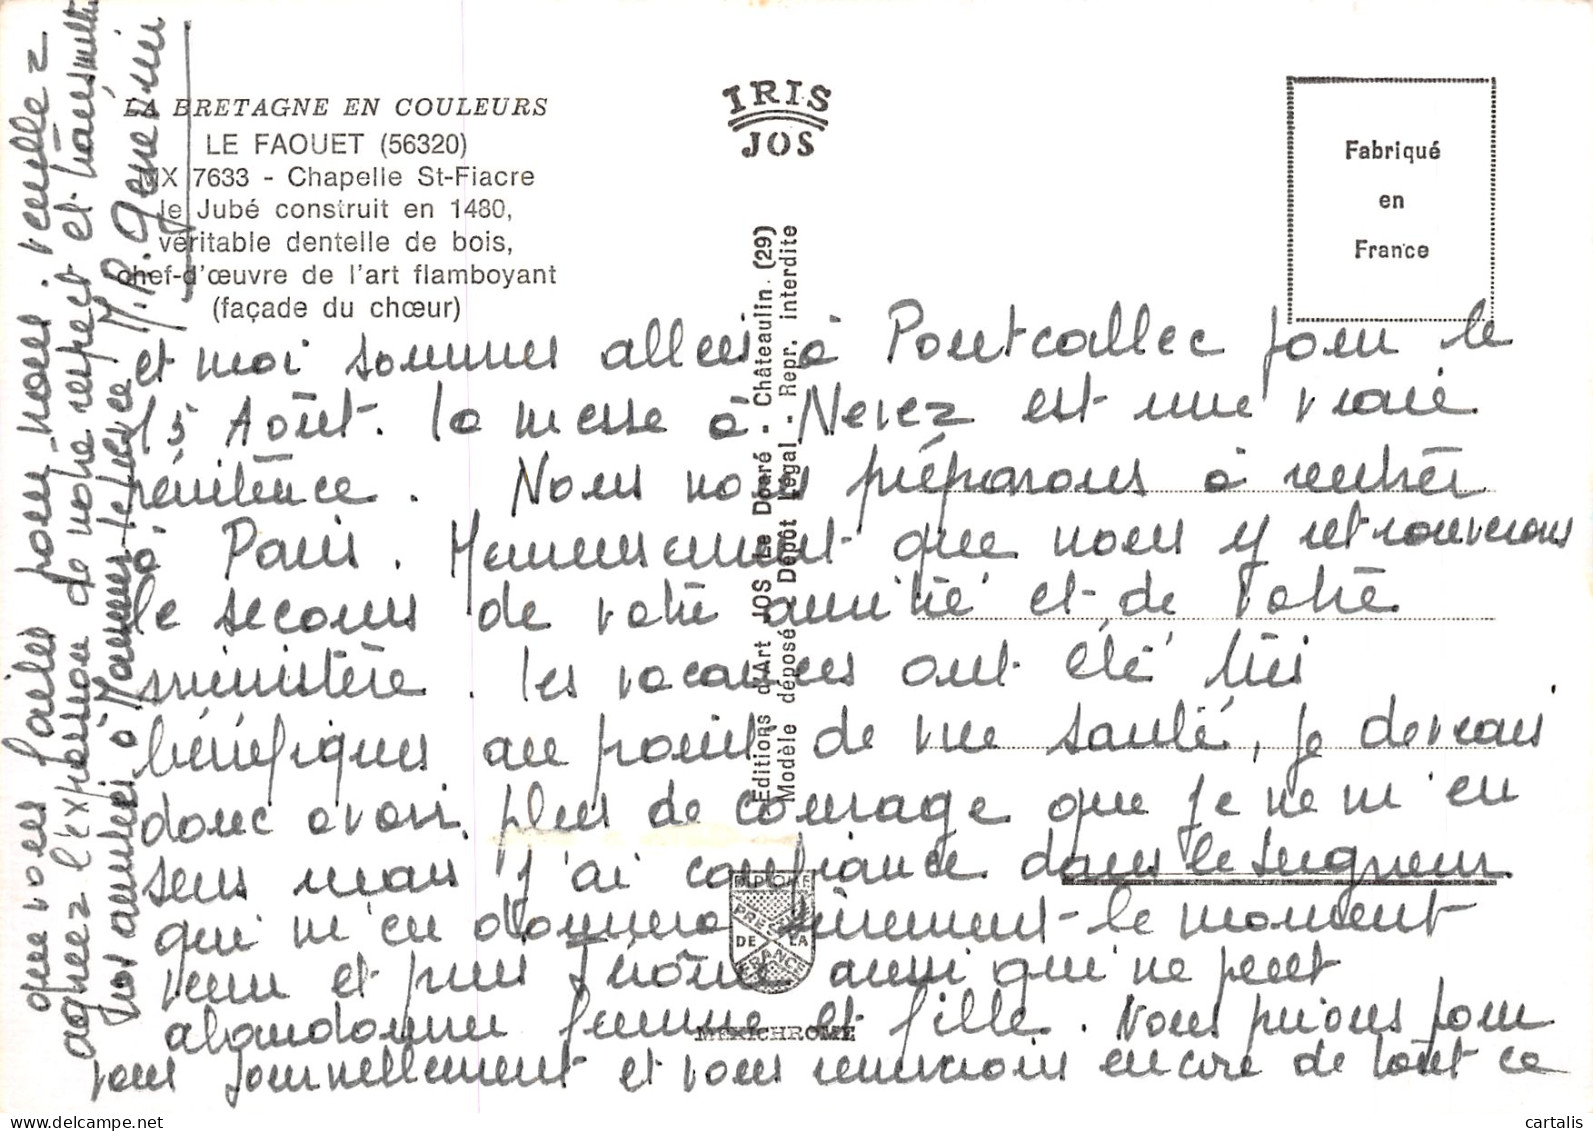 LA BRETAGNE EN COULEURS
LE FAOUET (56320)
MX 7633 - Chapelle St-Fiacre
le Jubé construit en 1480,
véritable dentelle de bois,
chef-d'œuvre de l'art flamboyant
(façade du chœur)
IRIS
JOS
Fabriqué
en
France
Editions d'Art JOS Le Doaré - Châteaulin. (29)
Modèle déposé - Dépôt Légal - Repr. interdite
et moi sommes allées à Pontcallec pour le
15 Août. la messe à Nevez est une vraie
pénitence. Nous nous préparons à rentrer
à Paris. Heureusement que nous y retrouverons
le secours de votre amitié et de votre
ministère. les vacances ont été très
bénéfiques au point de vue santé, je devrais
donc avoir plus de courage que je ne m'en
sens mais j'ai confiance dans le Seigneur
qui m'en donnera sûrement le moment
venu et puis Jérôme aussi qui ne peut
abandonner femme et fille. Nous prions pour
vous journellement et vous remercions encore de tout ce
que vous faites pour nous. veuillez
agréez l'expression de notre respect et transmettre
nos amitiés à Maman
M.P.
DIPLOME
PRES
DE LA
FRANCE
MEXICHROME
cartalis
www.delcampe.net